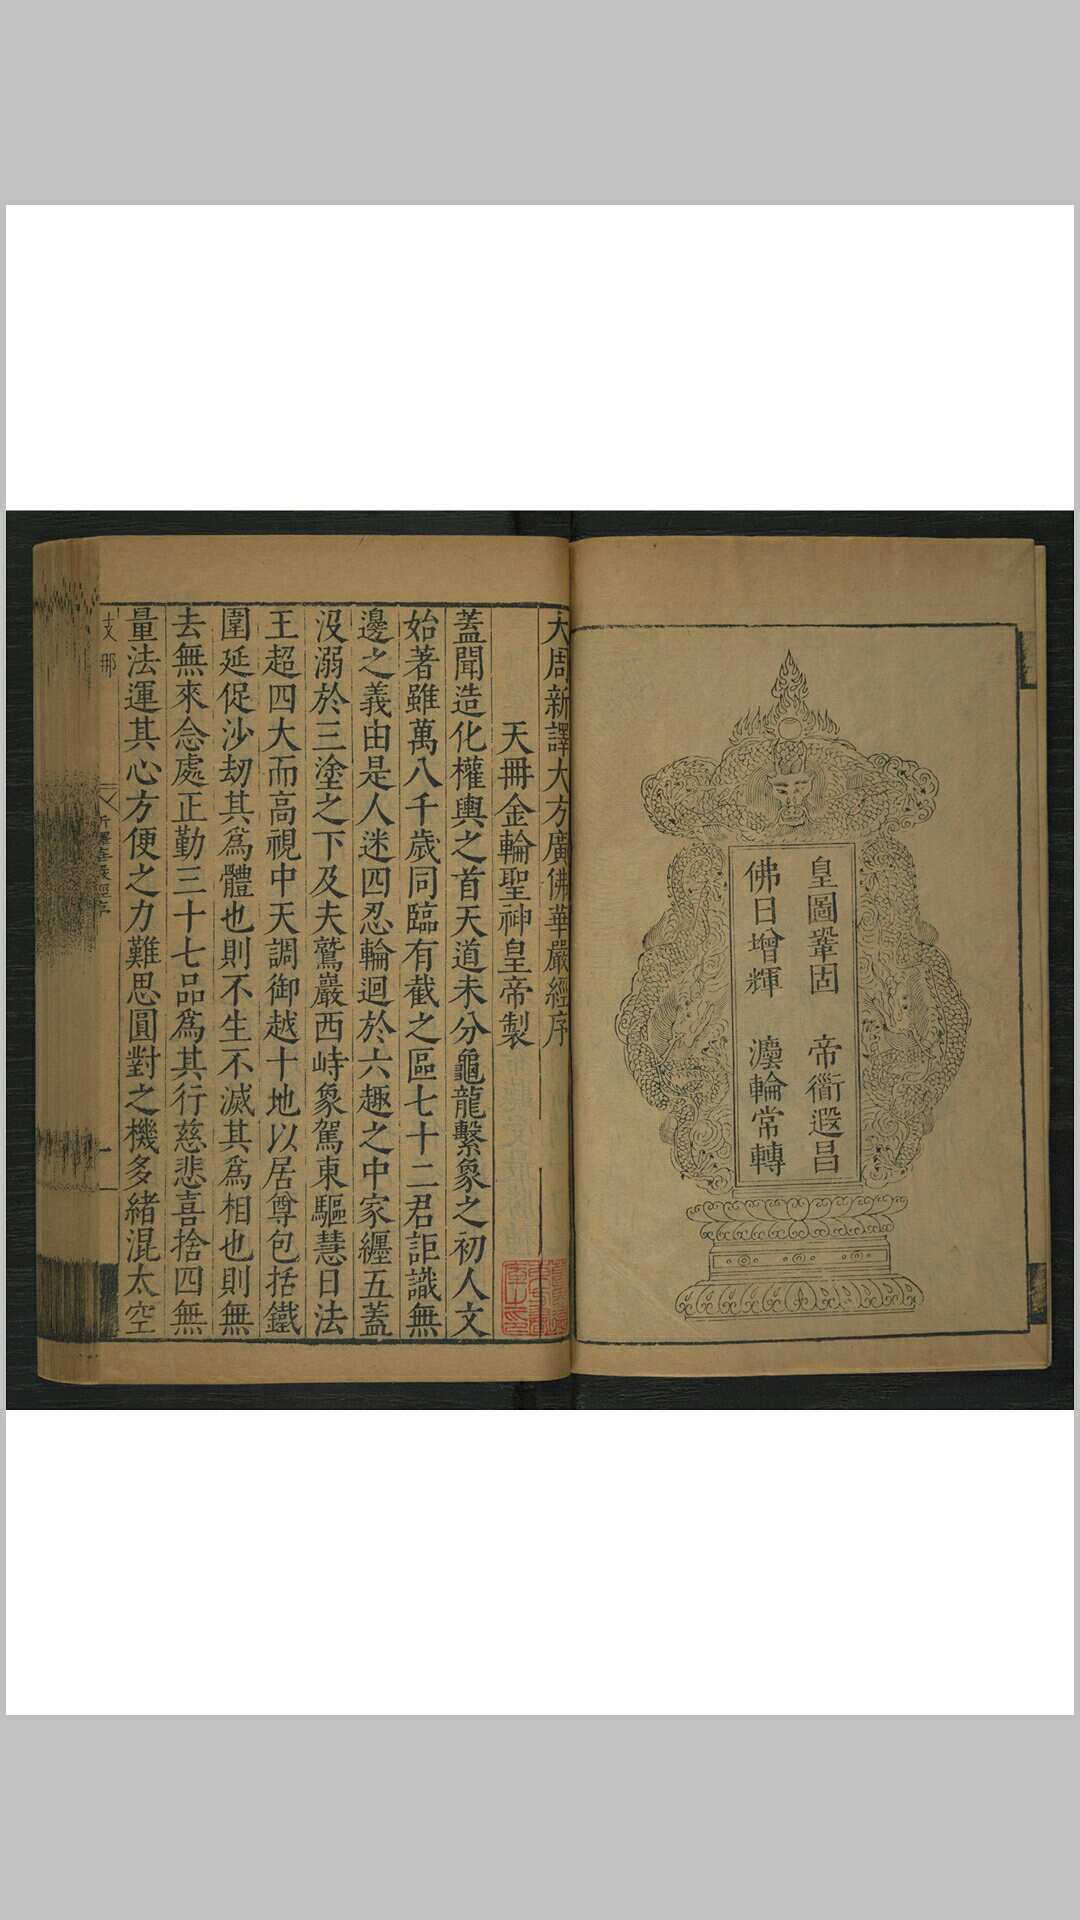 皇圖鞏固　帝衜遐昌
佛日增輝　灋輪常轉
大周新譯大方廣佛華嚴經序
天冊金輪聖神皇帝製
蓋聞造化權輿之首天道未分龜龍繫象之初人文
始著雖萬八千歲同臨有截之區七十二君詎識無
邊之義由是人迷四忍輪迴於六趣之中家纏五蓋
沒溺於三塗之下及夫鷲巖西峙象駕東驅慧日法
王超四大而高視中天調御越十地以居尊包括鐵
圍延促沙劫其爲體也則不生不滅其爲相也則無
去無來念處正勤三十七品爲其行慈悲喜捨四無
量法運其心方便之力難思圓對之機多緒混太空
支那
新譯華嚴經序
一